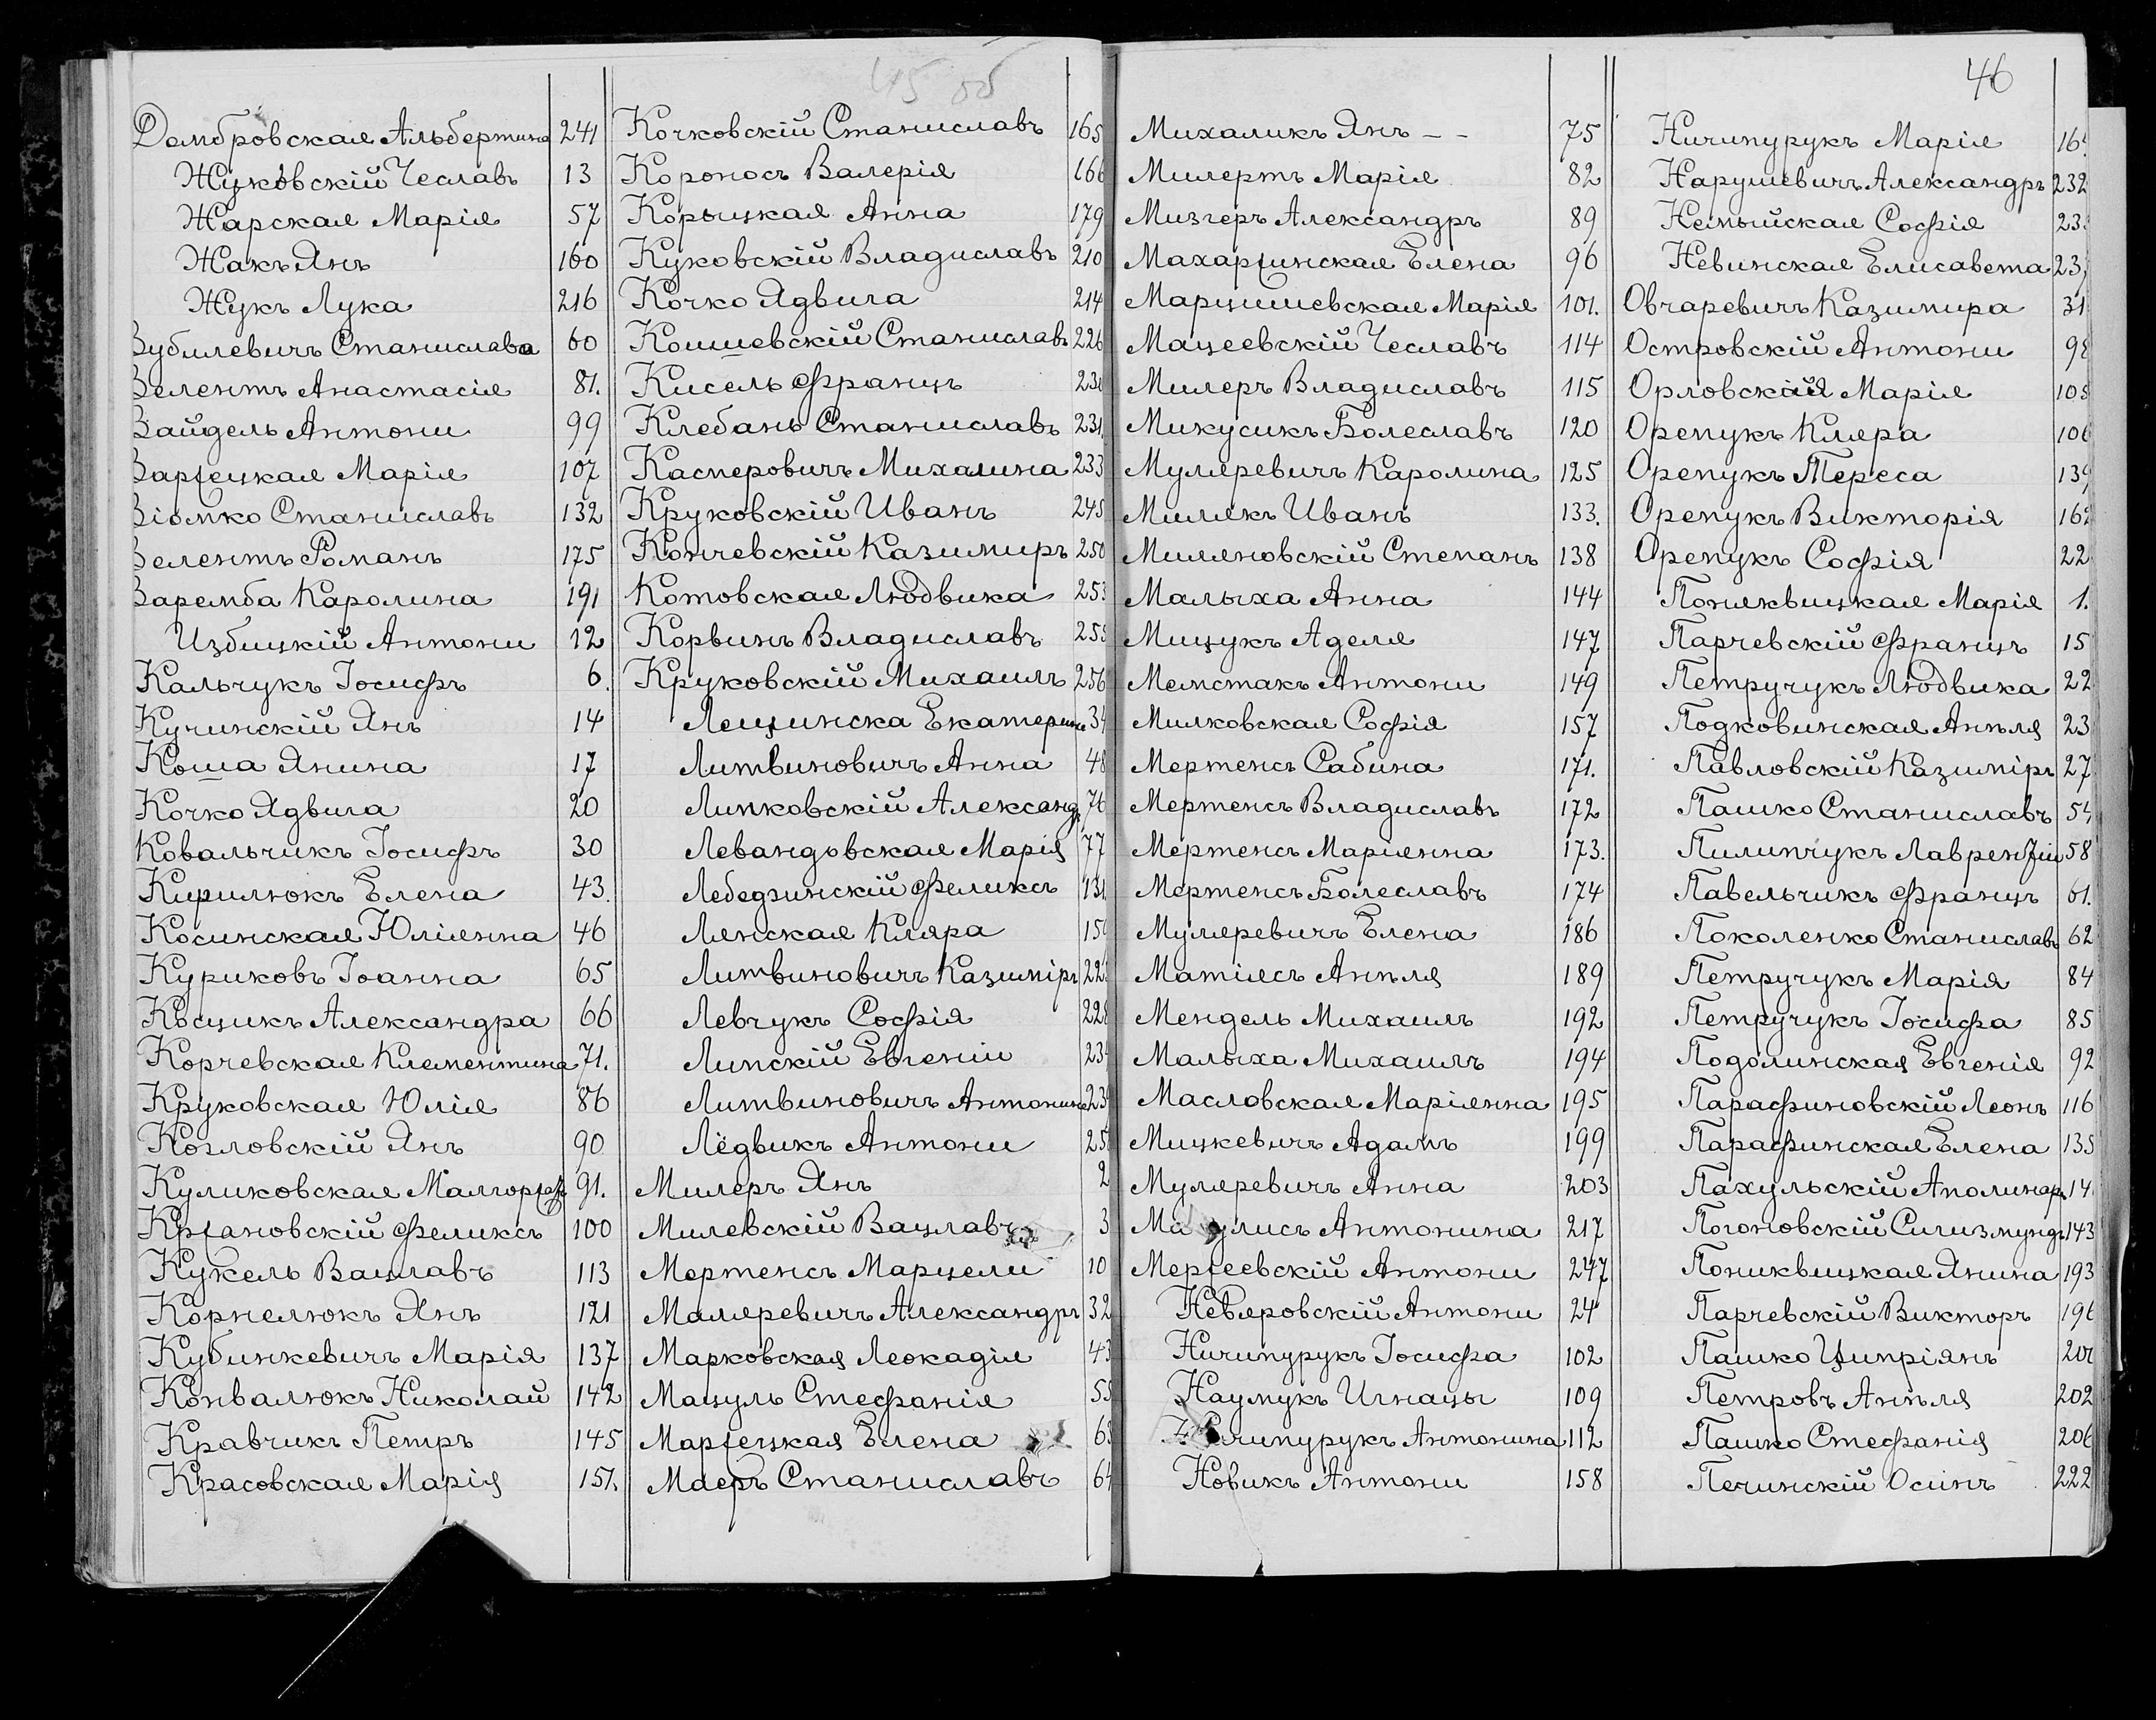 45 55
46
Домбровская Альбертина 241
Жуковскій Чеславъ 13
Жарская Марія 57
Жакъ Янъ 160
Жукъ Лука 216
Зубилевичъ Станислава 60
Зелентъ Анастасія 81.
Зайдель Антони 99
Заржецкая Марія 107
Зіомко Станиславъ 132
Зелентъ Романъ 175
Заремба Каролина 191
Избицкій Антони 12
Кальчукъ Іосифъ 6.
Кучинскій Янъ 14
Коша Янина 17
Кочко Ядвига 20
Ковальчикъ Іосифъ 30
Кирилюкъ Елена 43.
Косинская Юліянна 46
Куриковъ Іоанна 65
Косцикъ Александра 66
Корчевская Клементина 71.
Круковская Юлія 86
Козловскій Янъ 90
Куликовская 91.
Кржановскій Феликсъ 100
Кукель Вацлавъ 113
Корнелюкъ Янъ 121
Кубинкевичъ Марія 137
Конвалюкъ Николай 142
Кравчикъ Петръ 145
Красовская Марія 151.
Кочковскій Станиславъ 165
Короносъ Валерія 166
Корыцкая Анна 179
Куковскій Владиславъ 210
Кочко Ядвига 214
Кошшевскій Станиславъ 226
Кисель Францъ 230
Клебанъ Станиславъ 231.
Касперовичъ Михалина 233
Круковскій Иванъ 245
Кончевскій Казимиръ 250
Котовская Людвика 253
Корвинъ Владиславъ 255
Круковскій Михаилъ 256
Лещинска Екатерина 34
Литвиновичъ Анна 48
Липковскій Александръ 76
Левандовская Марія 77
Лебедзинскій Феликсъ 131.
Лянская Кляра 150
Литвиновичъ Казиміръ 223
Левчукъ Софія 228
Липскій Евгеніи 234
Литвиновичъ Антонина 239
Лёдвикъ Антони 25
Милеръ Янъ 2
Милевскій Вацлавъ 3
Мертенсъ Марцели 10
Маляревичъ Александръ 32
Марковская Леокадія 43
Мацуль Стефанія 55
Маржецкая Елена 63
Маеръ Станиславъ 64
Михаликъ Янъ – - 75
Милертъ Марія 82
Мизгеръ Александръ 89
Махаржинская Елена 96
Марцишевская Марія 101.
Мацеевскій Чеславъ 114
Милеръ Владиславъ 115
Микусикъ Болеславъ 120
Муляревичъ Каролина 125
Милякъ Иванъ 133.
Миляновскій Степанъ 138
Малыха Анна 144
Мицукъ Аделя 147
Мемстакъ Антони 149
Милковская Софія 157
Мертенсъ Сабина 171.
Мертенсъ Владиславъ 172
Мертенсъ Маріянна 173.
Мертенсъ Болеславъ 174
Муляревичъ Елена 186
Матіясъ Анѣля 189
Мендель Михаилъ 192
Малыха Михаилъ 194
Масловская Маріянна 195
Мицкевичъ Адамъ 199
Муляревичъ Анна 203
Антонина 217
Мержеевскій Антони 247
Невяровскій Антони 24
Ничипурукъ Іосифа 102
Наумукъ Игнацы 109
Ничипурукъ Антонина 112
Новикъ Антони 158
Ничипурукъ Марія 164
Нарушевичъ Александръ 232
Немыйская Софія 23
Невинская Елисавета 23
Овчаревичъ Казимира 31
Островскій Антони 98
Орловская Марія 105
Орепукъ Кляра 106
Орепукъ Тереса 139
Орепукъ Викторія 162
Орепукъ Софія 22
Поняквицкая Марія 1.
Парчевскій Францъ 15
Петручукъ Людвика 22
Подковинская Анѣля 23
Павловскій Казиміръ 27
Пашко Станиславъ 54
Пилипчукъ Лаврентій 58
Павельчикъ Францъ 61.
Поколенко Станиславъ 62
Петручукъ Марія 84
Петручукъ Іосифа 85
Подолинская Евгенія 92
Парафиновскій Леонъ 116
Парафинская Елена 135
Пахульскій Аполинаръ 14
Погоновскій Сигизмундъ 143
Пониквицкая Янина 193
Парчевскій Викторъ 196
Пашко Ципріянъ 200
Петровъ Анѣля 202
Пашко Стефанія 206
Печинскій Осипъ 222